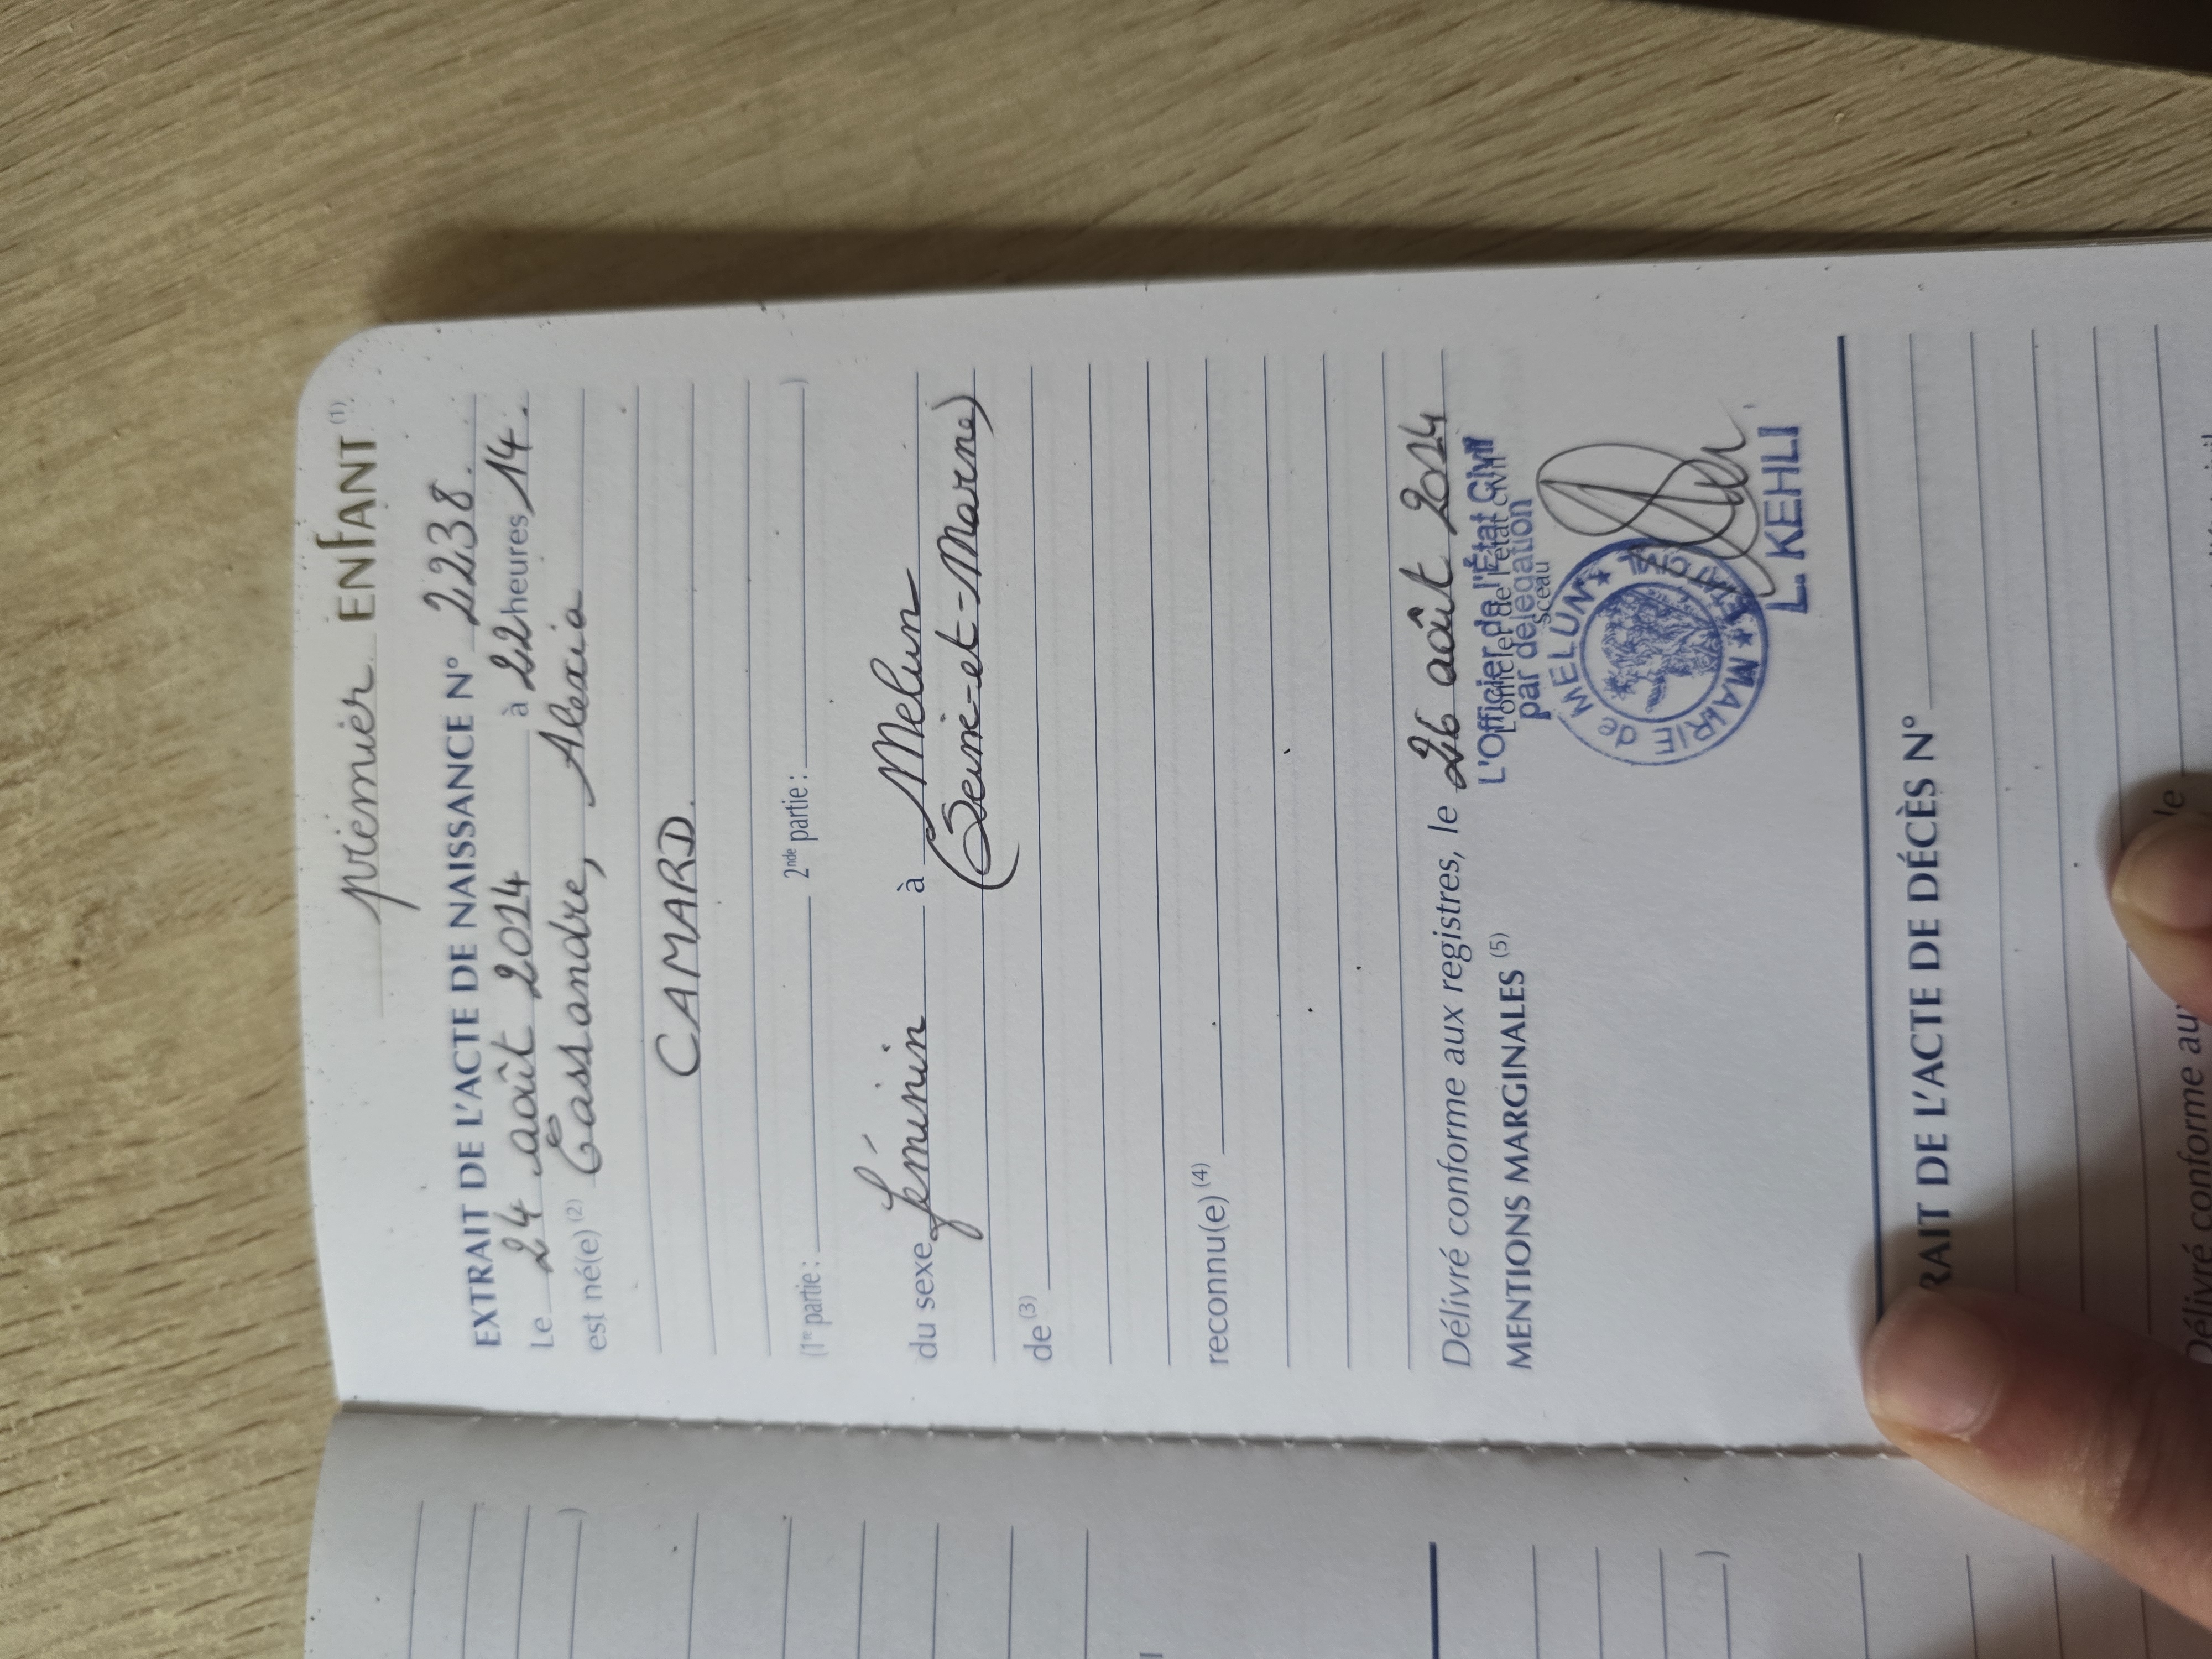 premier ENFANT (1)
EXTRAIT DE L'ACTE DE NAISSANCE N° 2238.
Le 24 août 2014 à 22 heures 14.
est né(e) (2) Cassandre, Alexia
CAMARD.
(1re partie : 2nde partie : )
du sexe féminin à Melun
(Seine-et-Marne)
de (3)
reconnu(e) (4)
Délivré conforme aux registres, le 26 août 2014
MENTIONS MARGINALES (5)
L'Officier de l'État Civil
par délégation
L'officier de l'état civil
sceau
MAIRIE de MELUN
L. KEHLI
RAIT DE L'ACTE DE DÉCÈS N°
Délivré conforme aux
le